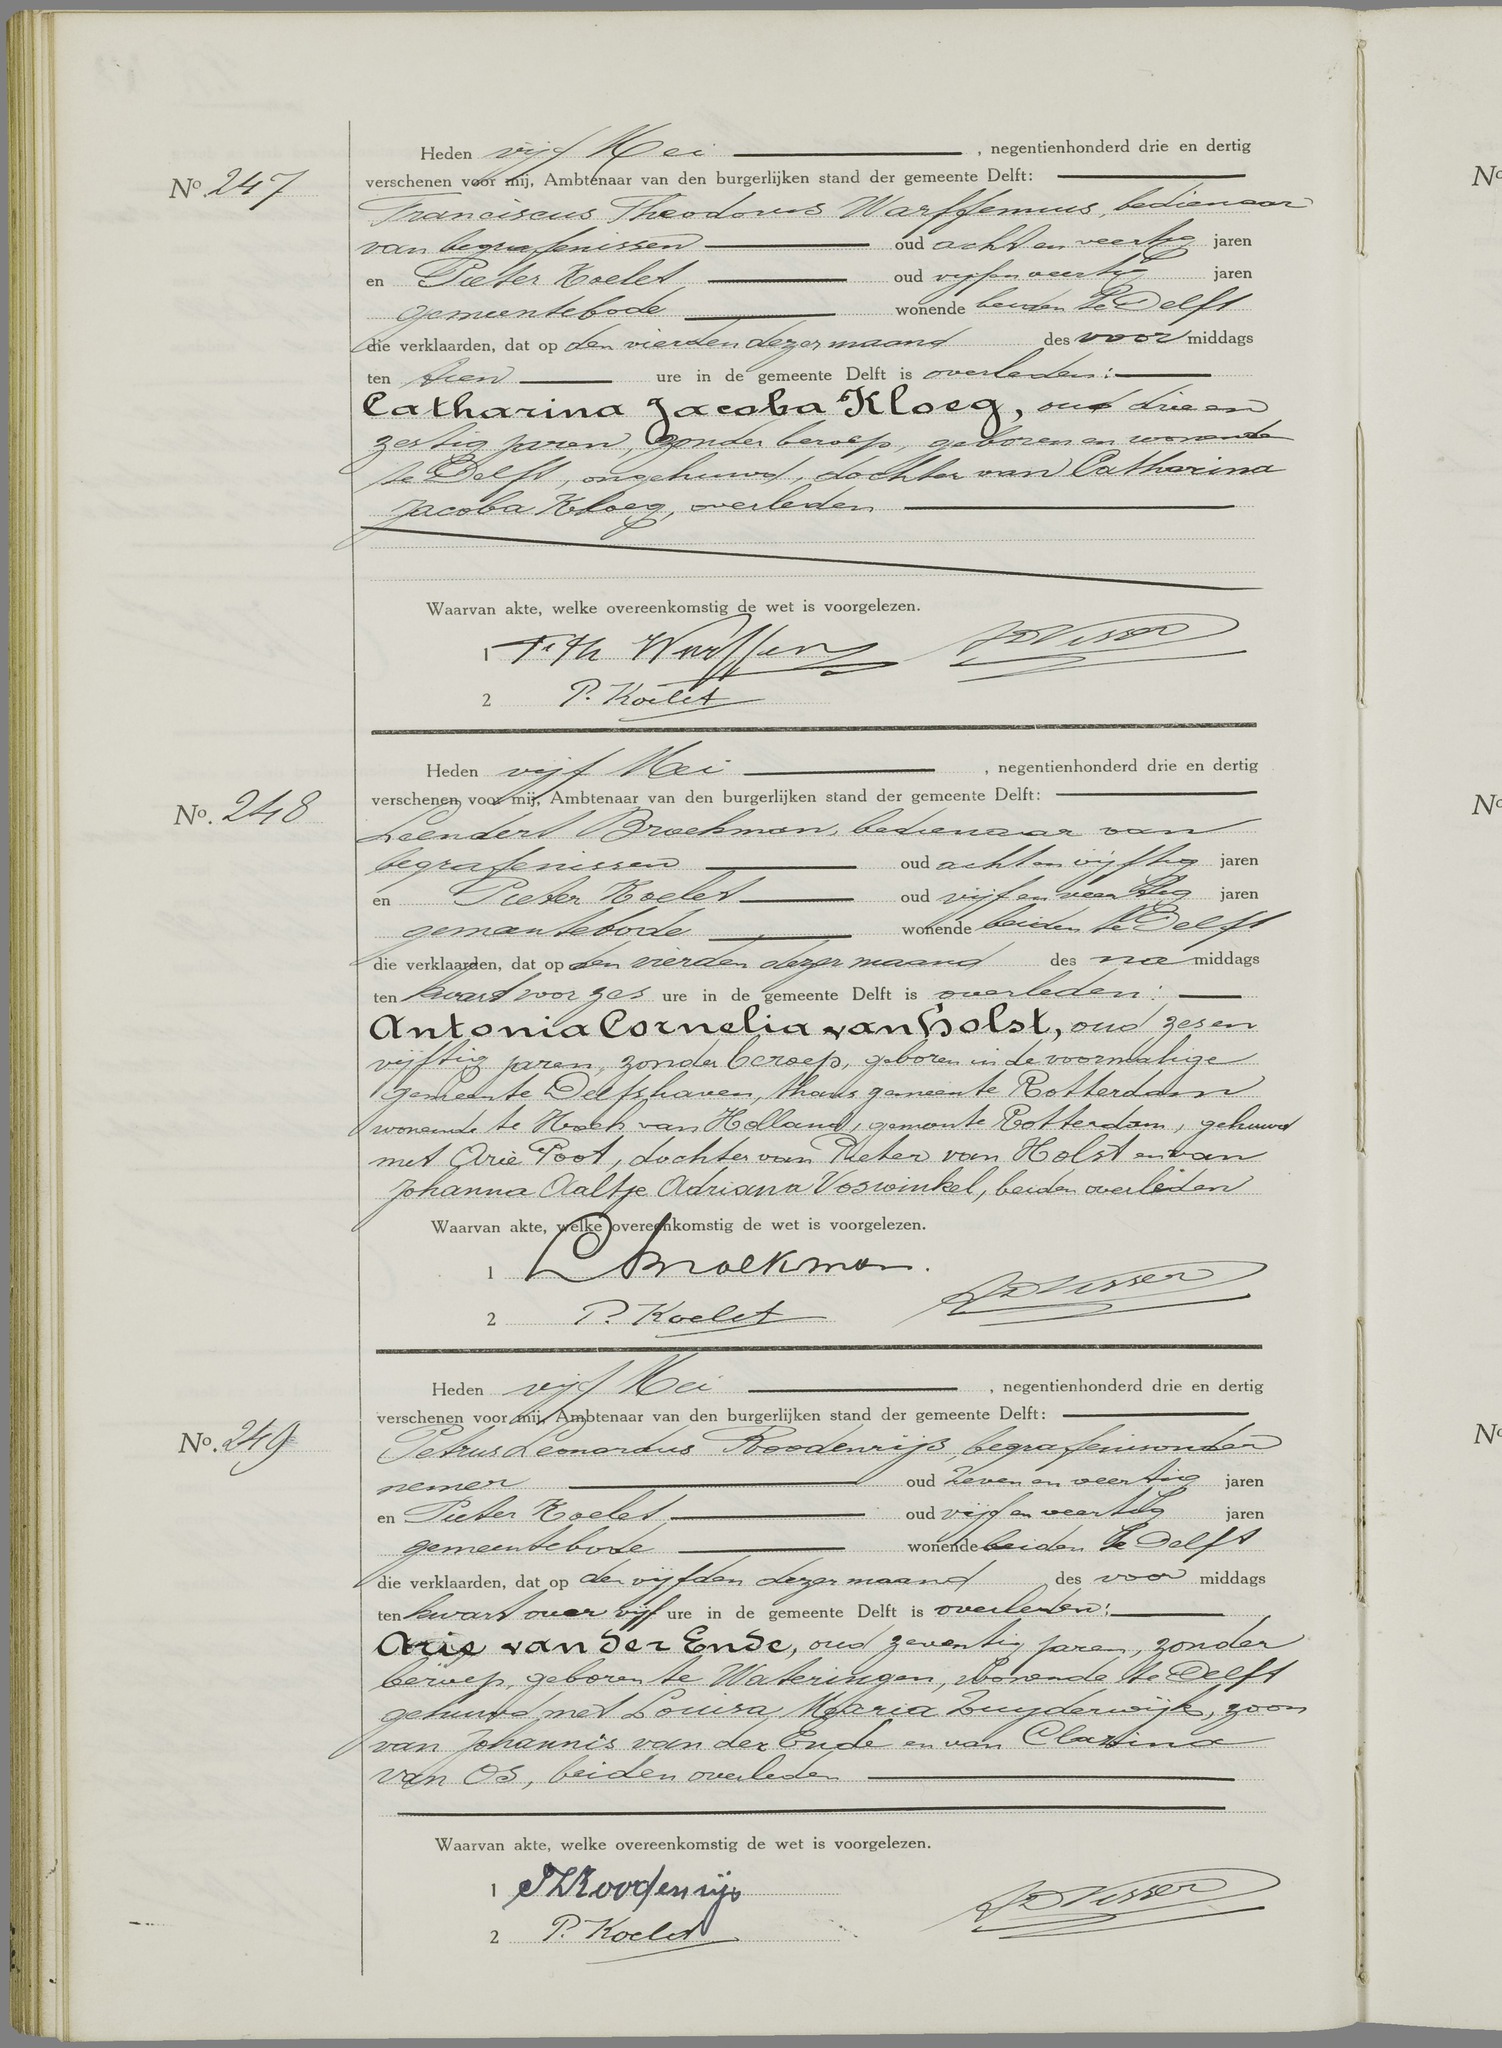 Heden vijf Mei , negentienhonderd drie en dertig
No. 247
verschenen voor mij, Ambtenaar van den burgerlijken stand der gemeente Delft:
Franciscus Theodorus Warffemius, bedienaar
van begrafenissen oud acht en veertig jaren
en Pieter Koelet oud vijf en veertig jaren
gemeentebode wonende beiden te Delft
die verklaarden, dat op den vierden dezer maand des voor middags
ten tien ure in de gemeente Delft is overleden:
Catharina Jacoba Kloeg, oud drie en
zestig jaren, zonder beroep, geboren en wonende
te Delft, ongehuwd, dochter van Catharina
Jacoba Kloeg, overleden
Waarvan akte, welke overeenkomstig de wet is voorgelezen.
1 F. Th Warffem Visser
2 P. Koelet
Heden vijf Mei , negentienhonderd drie en dertig
No. 248
verschenen voor mij, Ambtenaar van den burgerlijken stand der gemeente Delft:
Leendert Broekman, bedienaar van
begrafenissen oud acht en vijftig jaren
en Pieter Koelet oud vijf en veertig jaren
gemeentebode wonende beiden te Delft
die verklaarden, dat op den vierden dezer maand des na middags
ten kwart voor zes ure in de gemeente Delft is overleden:
Antonia Cornelia van Holst, oud zes en
vijftig jaren, zonder beroep, geboren in de voormalige
gemeente Delfshaven, thans gemeente Rotterdam
wonende te Hoek van Holland, gemeente Rotterdam, gehuwd
met Arie Poot, dochter van Pieter van Holst en van
Johanna Aaltje Adriana Voswinkel, beiden overleden
Waarvan akte, welke overeenkomstig de wet is voorgelezen.
1 L Broekman. Visser
2 P. Koelet
Heden vijf Mei , negentienhonderd drie en dertig
No. 249
verschenen voor mij, Ambtenaar van den burgerlijken stand der gemeente Delft:
Petrus Leonardus Roodenrijs, begrafenisonder
nemer oud zeven en veertig jaren
en Pieter Koelet oud vijf en veertig jaren
gemeentebode wonende beiden te Delft
die verklaarden, dat op den vijfden dezer maand des voor middags
ten kwart over vijf ure in de gemeente Delft is overleden:
Arie van der Ende, oud zeventig jaren, zonder
beroep, geboren te Wateringen, wonende te Delft
gehuwd met Louisa Maria Zuyderwijk, zoon
van Johannis van der Ende en van Clasina
van Os, beiden overleden
Waarvan akte, welke overeenkomstig de wet is voorgelezen.
1 PLRoodenrijs Visser
2 P. Koelet
No
No
No